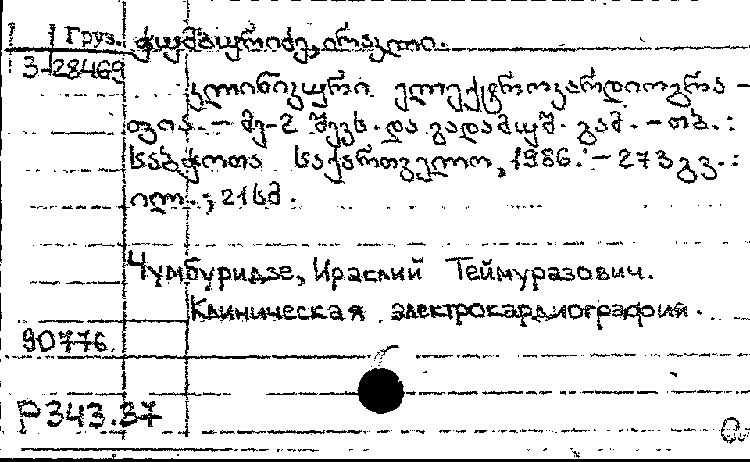 Груз. ჭუმბურიძე, ირაკლი.
3-28469
კლინიკური ელექტროკარდიოგრა-
ფია. - მე-2 შევს. და გადამუშ. გამ. - თბ. :
საბჭოთა საქართველო, 1986. - 273 გვ. :
ილ. ; 21 სმ.
Чумбуридзе, Ираклий Теймуразович.
Клиническая электрокардиография.
90776
Р343.37